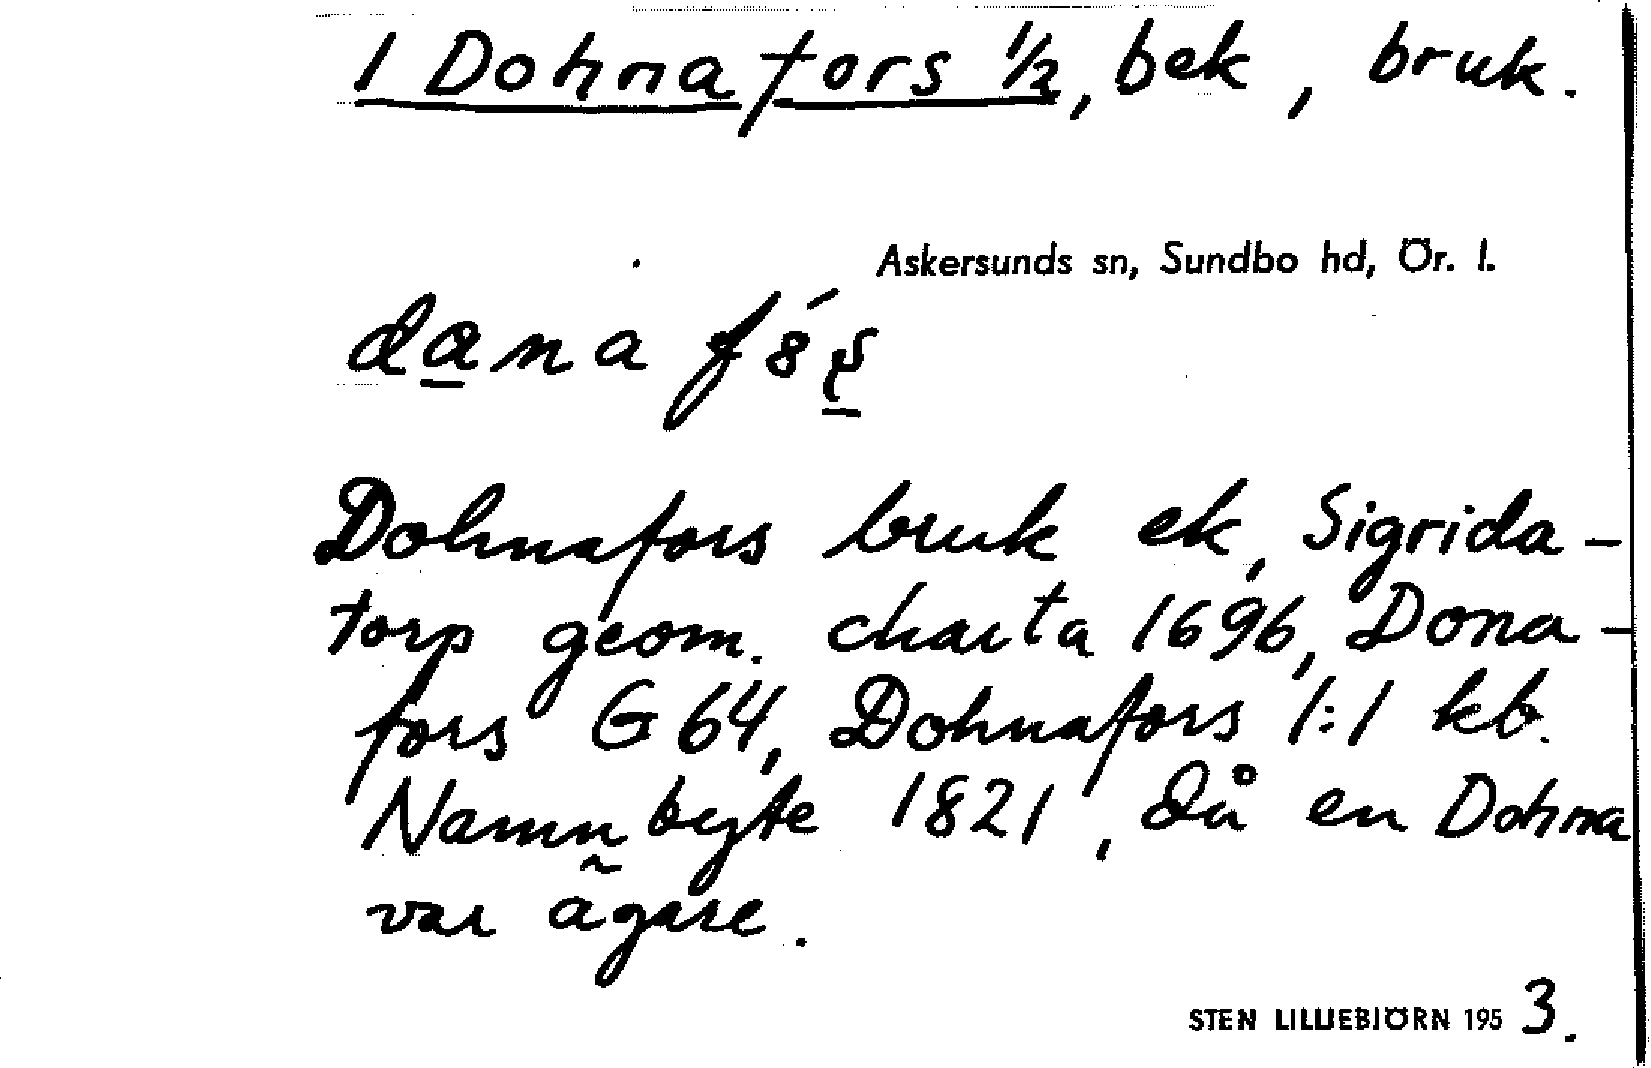 1 Dohnafors 1/2, bek, bruk.
Askersunds sn, Sundbo hd, Ör. l.
Dohnafors bruk ek, Sigrida-
torp geom. charta 1696, Dona-
fors G 64, Dohnafors 1:1 kb.
Namnbyte 1821, då en Dohna
var ägare.
STEN LILLIEBJÖRN 1953.